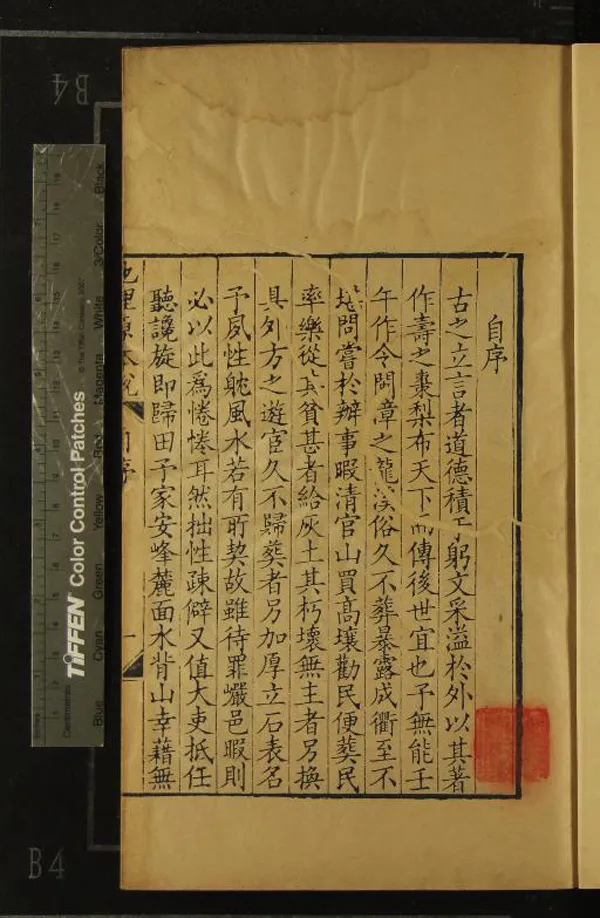 自序
古之立言者道德積于躬文采溢於外以其著
作壽之棗梨布天下而傳後世宜也予無能壬
午作令閩漳之龍溪俗久不葬暴露成衢至不
堪問嘗於辦事暇清官山買高壤勸民便葬民
率樂從其貧甚者給灰土其朽壞無主者另換
具外方之遊宦久不歸葬者另加厚立石表名
予夙性躭風水若有所契故雖待罪巖邑暇則
必以此為惓惓耳然拙性疎僻又值大吏抵任
聽讒旋即歸田予家安峰麓面水背山幸藉無
地理原本說
自序
一
TIFFEN Color Control Patches
© The Tiffen Company, 2007
Inches
Centimetres
Blue
Cyan
Green
Yellow
Red
Magenta
White
3/Color
Black
B4
B4